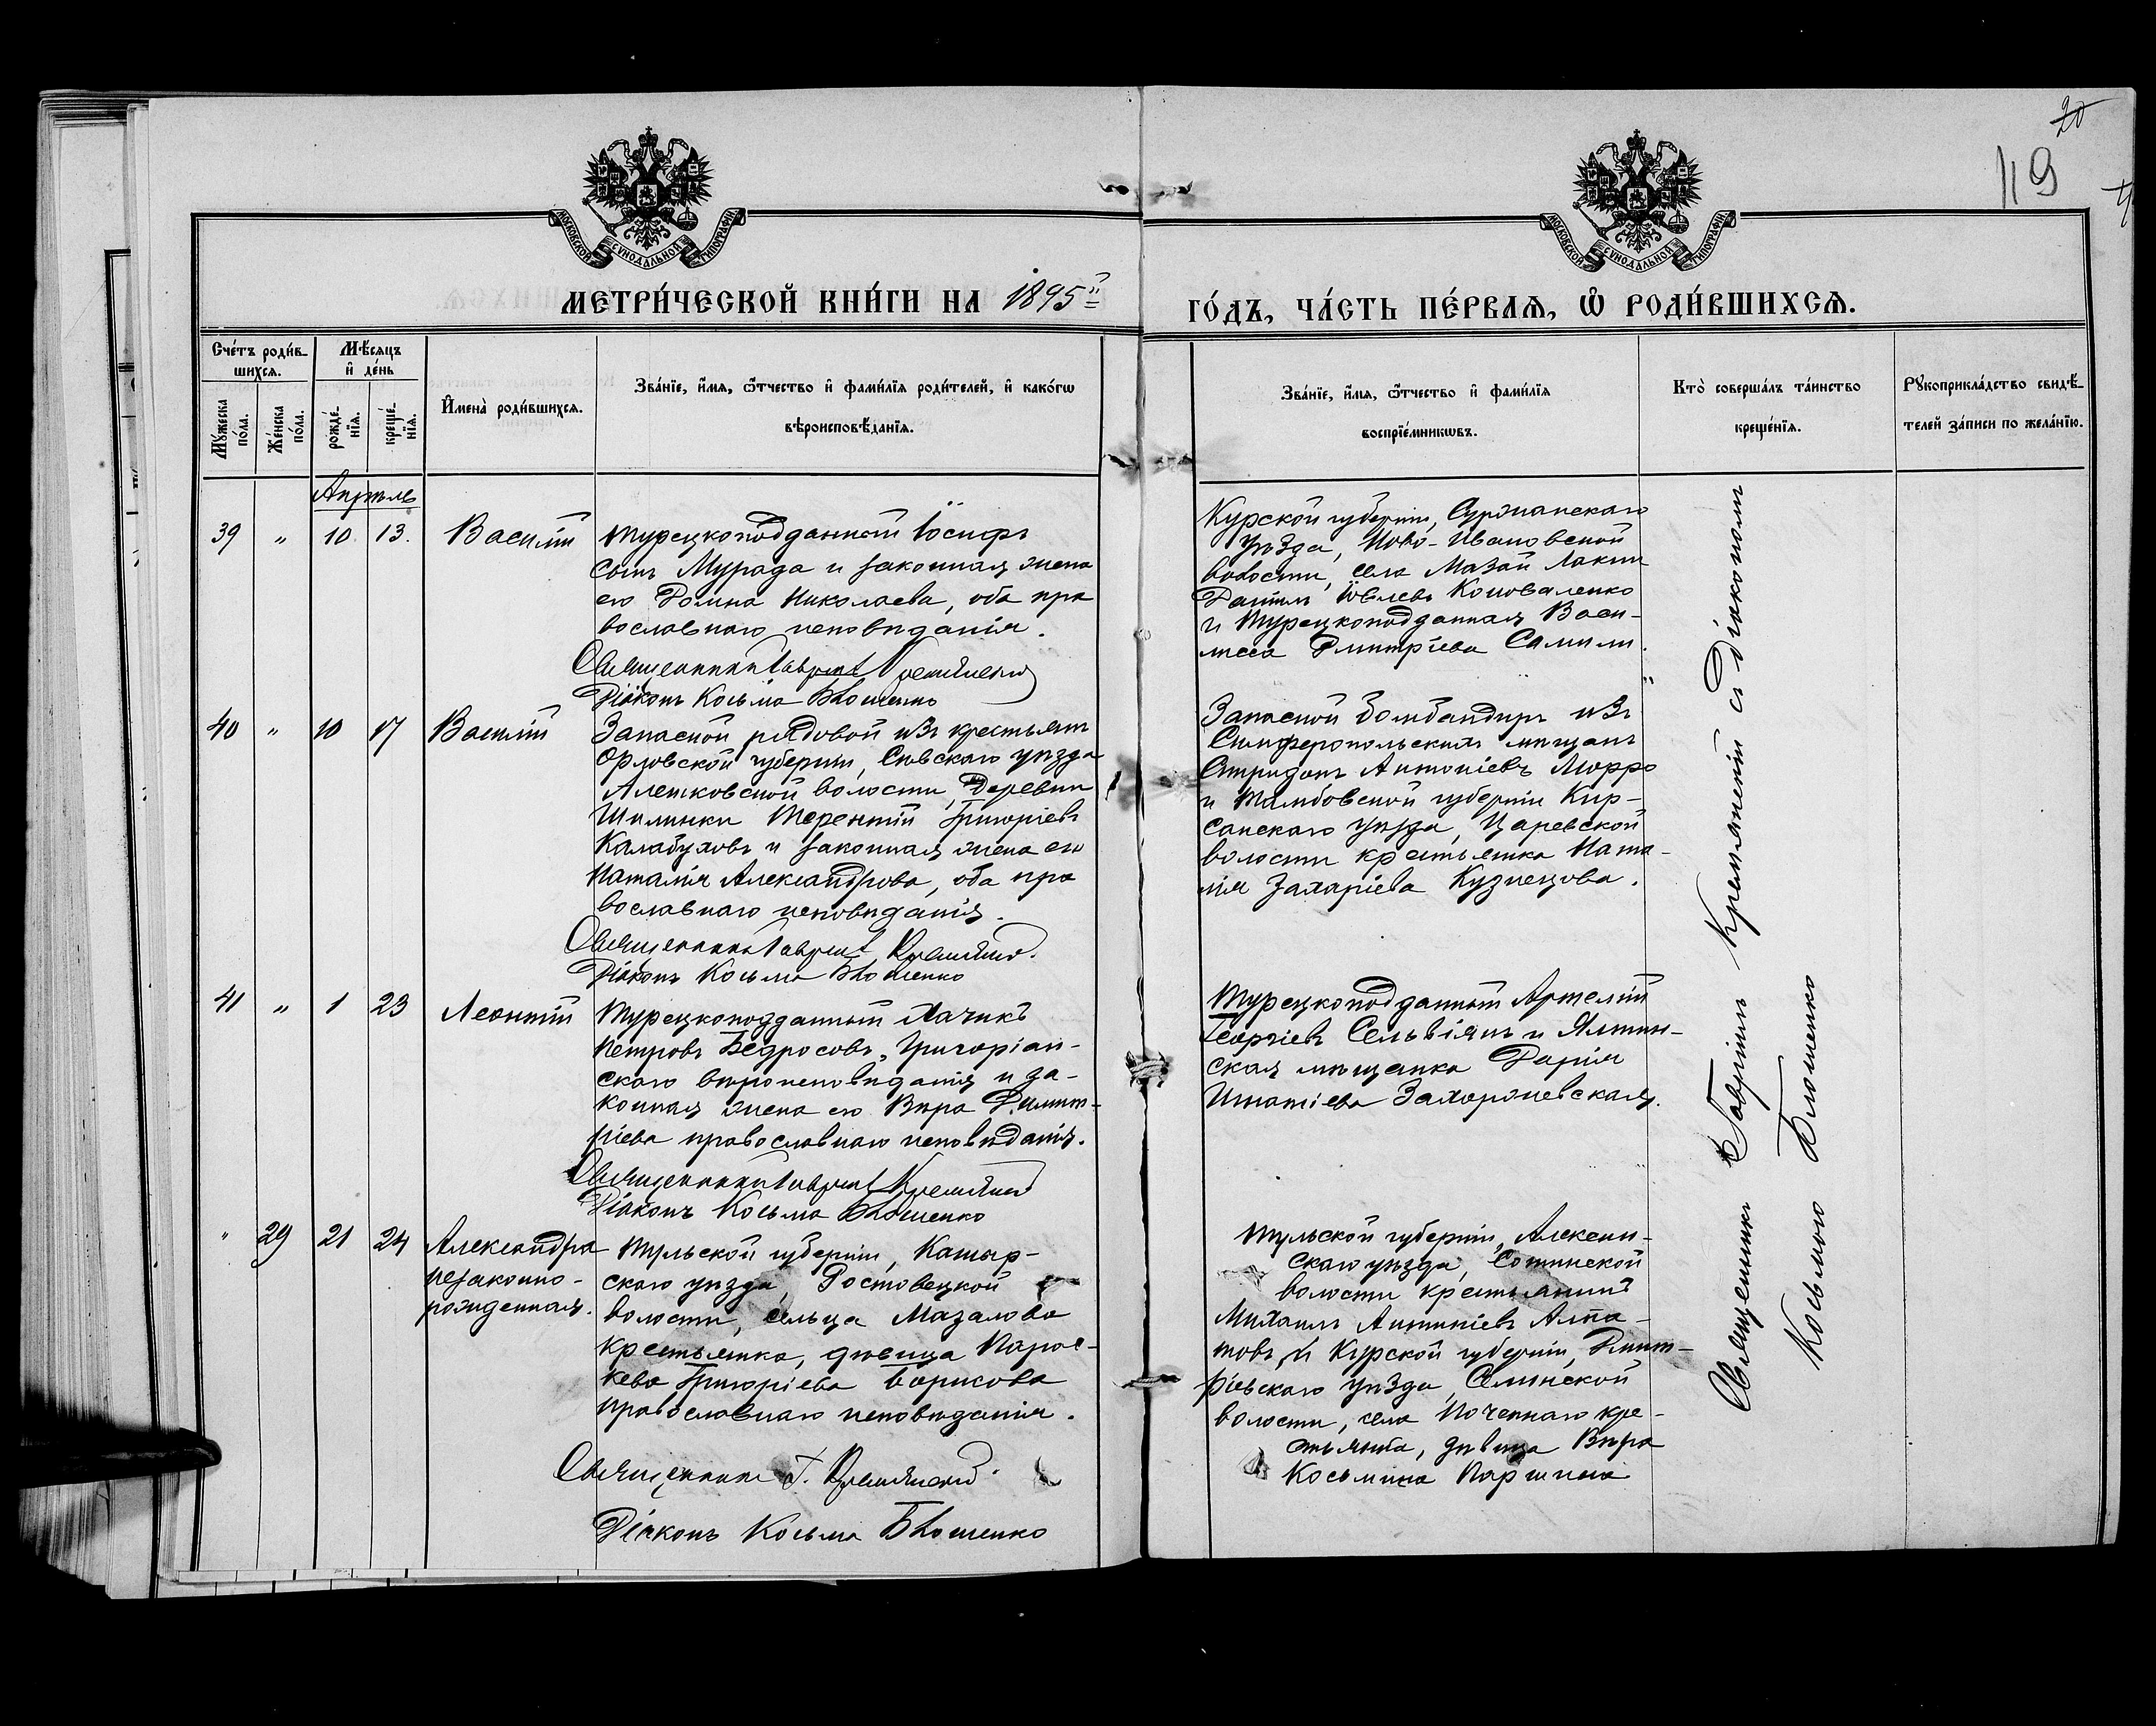 20
119
МОСКОВСКОЙ СѴНОДАЛЬНОЙ ТИПОГРАФІИ
МОСКОВСКОЙ СѴНОДАЛЬНОЙ ТИПОГРАФІИ
МЕТРИ́ЧЕСКОЙ КНИ́ГИ НА 1895й
ГО́ДЪ, ЧА́СТЬ ПЕ́РВАЯ, Ѡ РОДИ́ВШИХСЯ.
Сче́тъ роди́в-
шихся.
Му́жеска по́ла.
Же́нска по́ла.
Мѣ́сяцъ
и҆ де́нь
рожде́-
нїя.
креще́-
нїя.
И҆мена̀ роди́вшихся.
Зва́нїе, и҆́мя, ѻ҆́тчество и҆ фами́лїя роди́телей, и҆ како́гѡ
вѣроисповѣ́данїя.
Зва́нїе, и҆́мя, ѻ҆́тчество и҆ фами́лїя
воспрїе́мникѡвъ.
Кто̀ соверша́лъ та́инство
креще́нїя.
Рꙋкоприкла́дство свидѣ́-
телей за́писи по жела́нїю.
Апрѣль
39 " 10 13. Василій
Турецкоподданный Іосифъ
сынъ Мурада и законная жена
его Домна Николаева, оба пра
вославнаго исповѣданія.
Священникъ Гавріилъ
Діаконъ Косьма
Курской губерніи, Суджанскаго
уѣзда, Ново-Ивановской
волости, села
Коноваленко
и Турецкоподданная Васи-
лисса Димитріева
40 " 10 17 Василій
Запасной рядовой изъ крестьянъ
Орловской губерніи, Сѣвскаго уѣзда
Алешковской волости, деревни
Шилинки Терентій Григоріевъ
Калабуховъ и законная жена его
Наталія Александрова, оба пра
вославнаго исповѣданія.
Священникъ Гавріилъ
Діаконъ Косьма
Запасной бомбандиръ изъ
Симферопольскихъ мѣщанъ
Спиридонъ Антоніевъ Морро
и Тамбовской губерніи Кир-
санскаго уѣзда, Царевской
волости крестьянка Ната-
лія Захаріева Кузнецова.
41 " 1 23 Леонтій
Турецкоподданный Хачикъ
Петровъ Бедросовъ, Григоріан-
скаго вѣроисповѣданія и за-
конная жена его Вѣра Димит-
ріева православнаго исповѣданія.
Священникъ Гавріилъ
Діаконъ Косьма
Турецкоподданный Артемій
Георгіевъ Сельвіянъ и Ялтин-
ская мѣщанка Дарія
Игнатіева Захоржевская.
" 29 21 24 Александра
незаконно-
рожденная.
Тульской губерніи, Кашир-
скаго уѣзда, Ростовецкой
волости, сельца Мазалова
крестьянка, дѣвица Парас-
кева Григоріева Борисова
православнаго исповѣданія.
Священникъ Г.
Діаконъ Косьма
Тульской губерніи, Алексин-
скаго уѣзда, Сотинской
волости крестьянинъ
Михаилъ Антипіевъ Алпа-
товъ, и Курской губерніи, Димит-
ріевскаго уѣзда,
волости, села Поченнаго кре-
стьянка, дѣвица Вѣра
Косьмина Паршина
Священникъ Гавріилъ съ Діакономъ
Косьмою